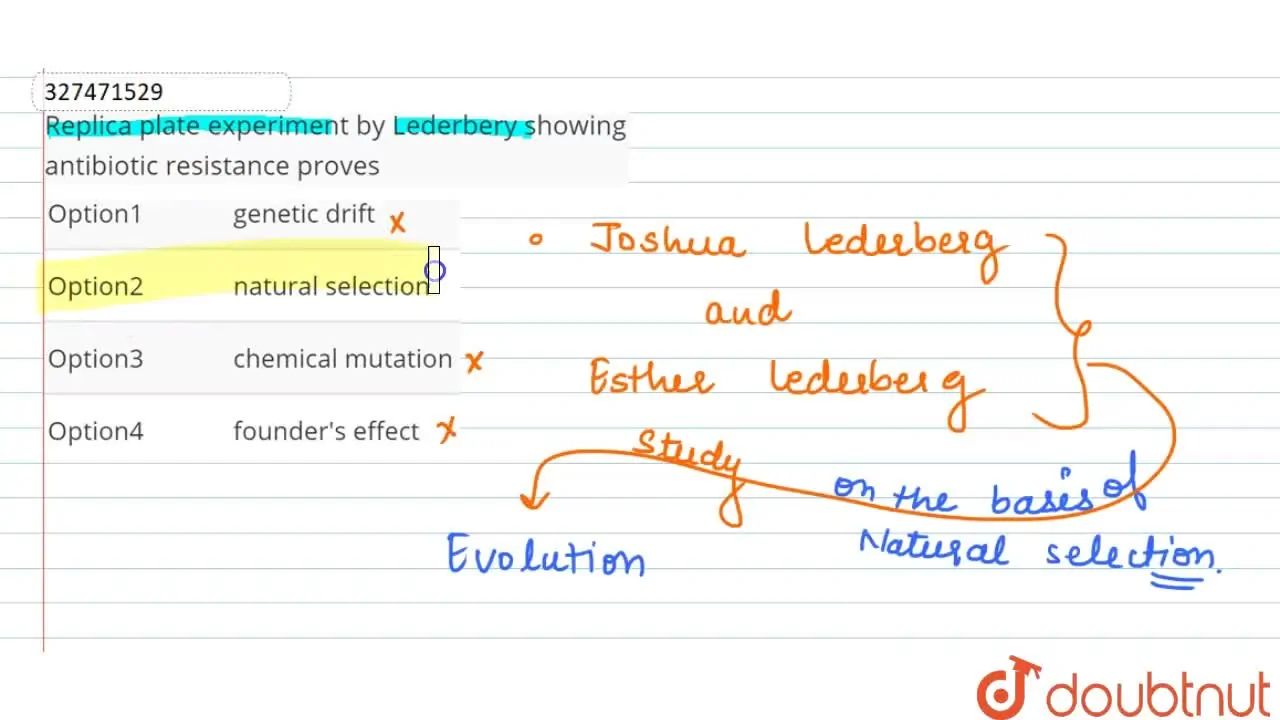 327471529
Replica plate experiment by Lederbery showing
antibiotic resistance proves
Option1 genetic drift x
Option2 natural selection
Option3 chemical mutation x
Option4 founder's effect x
Joshua Lederberg
and
Esther Lederberg
Study
on the basis of
Natural selection.
Evolution
doubtnut